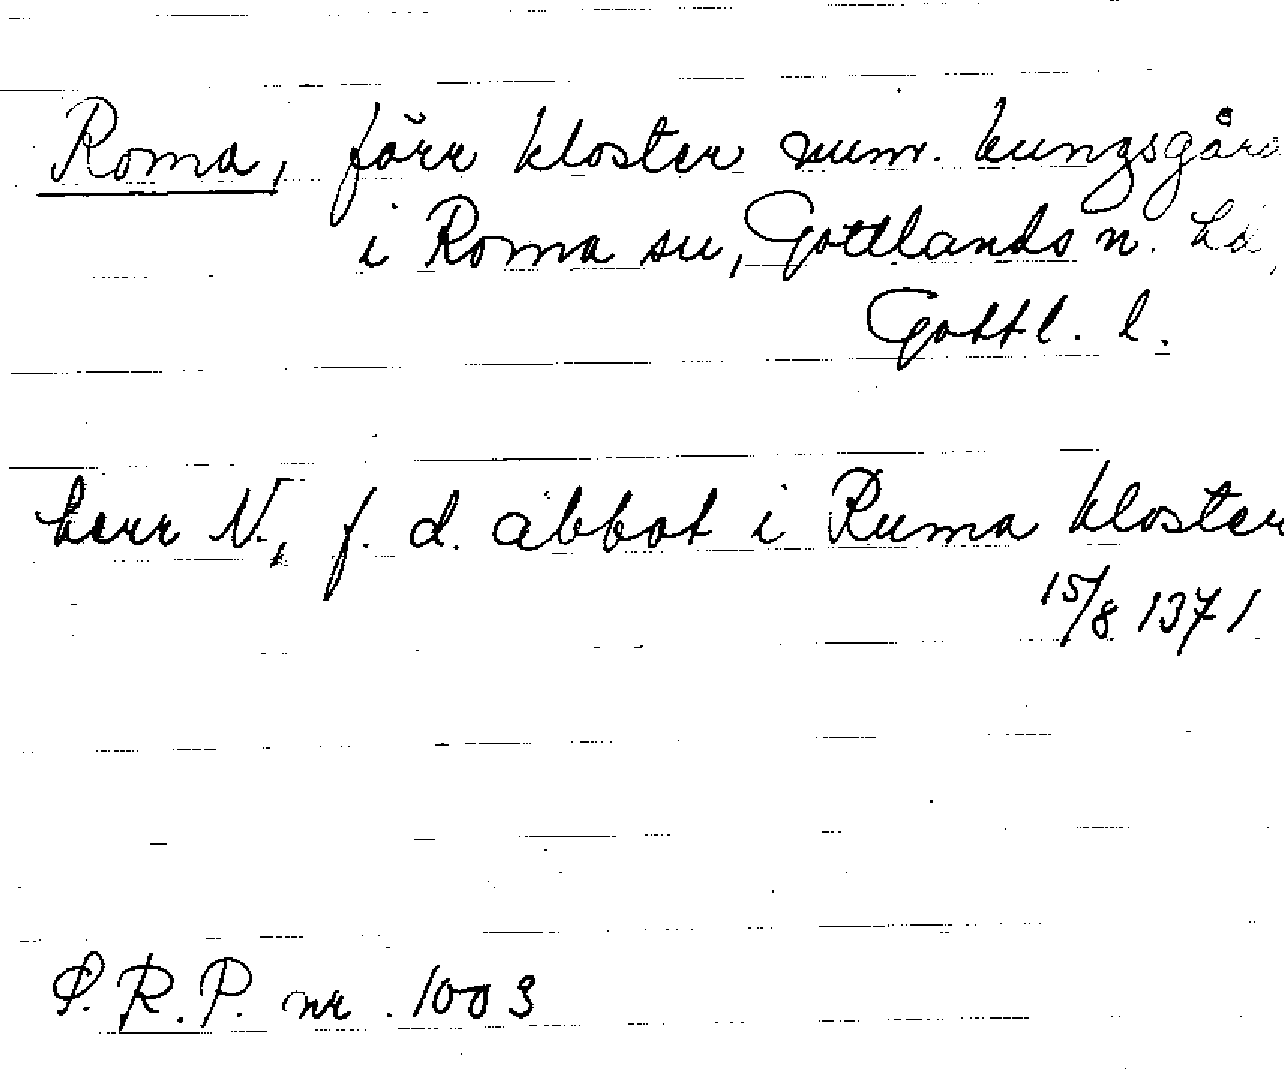 Roma, förr kloster numr. kungsgård
i Roma sn, Gottlands n. hd,
Gottl. l.
herr N., f. d. abbot i Ruma kloster
15/8 1371
S.R.P. nr. 1003